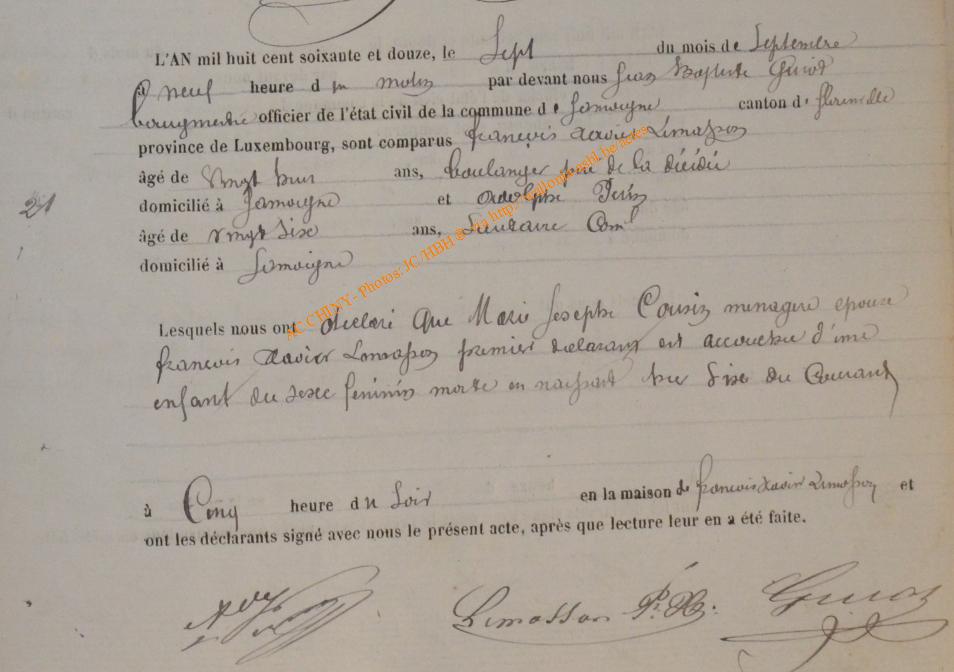 L'AN mil huit cent soixante et douze, le Sept du mois de Septembre
à neuf heure du matin par devant nous Jean Baptiste Guiot
bourgmestre officier de l'état civil de la commune de Jamoigne canton de florenville
province de Luxembourg, sont comparus françois Xavier Limasson
21
âgé de vingt huit ans, boulanger père de la décédée
domicilié à Jamoigne et Adolphe
âgé de vingt six ans, Secrétaire Comal
domicilié à Jamoigne
AC CHINY - Photos: JC/HBH © via http://
Lesquels nous ont déclaré que Marie Josephe Cousin menagere epouse
françois Xavier Limasson premier déclarant est accouchée d'une
enfant du sexe feminin morte en naissant hier Six du Courant
à Cinq heure du Soir en la maison de francois Xavier Limasson et
ont les déclarants signé avec nous le présent acte, après que lecture leur en a été faite.
Limasson Guiot